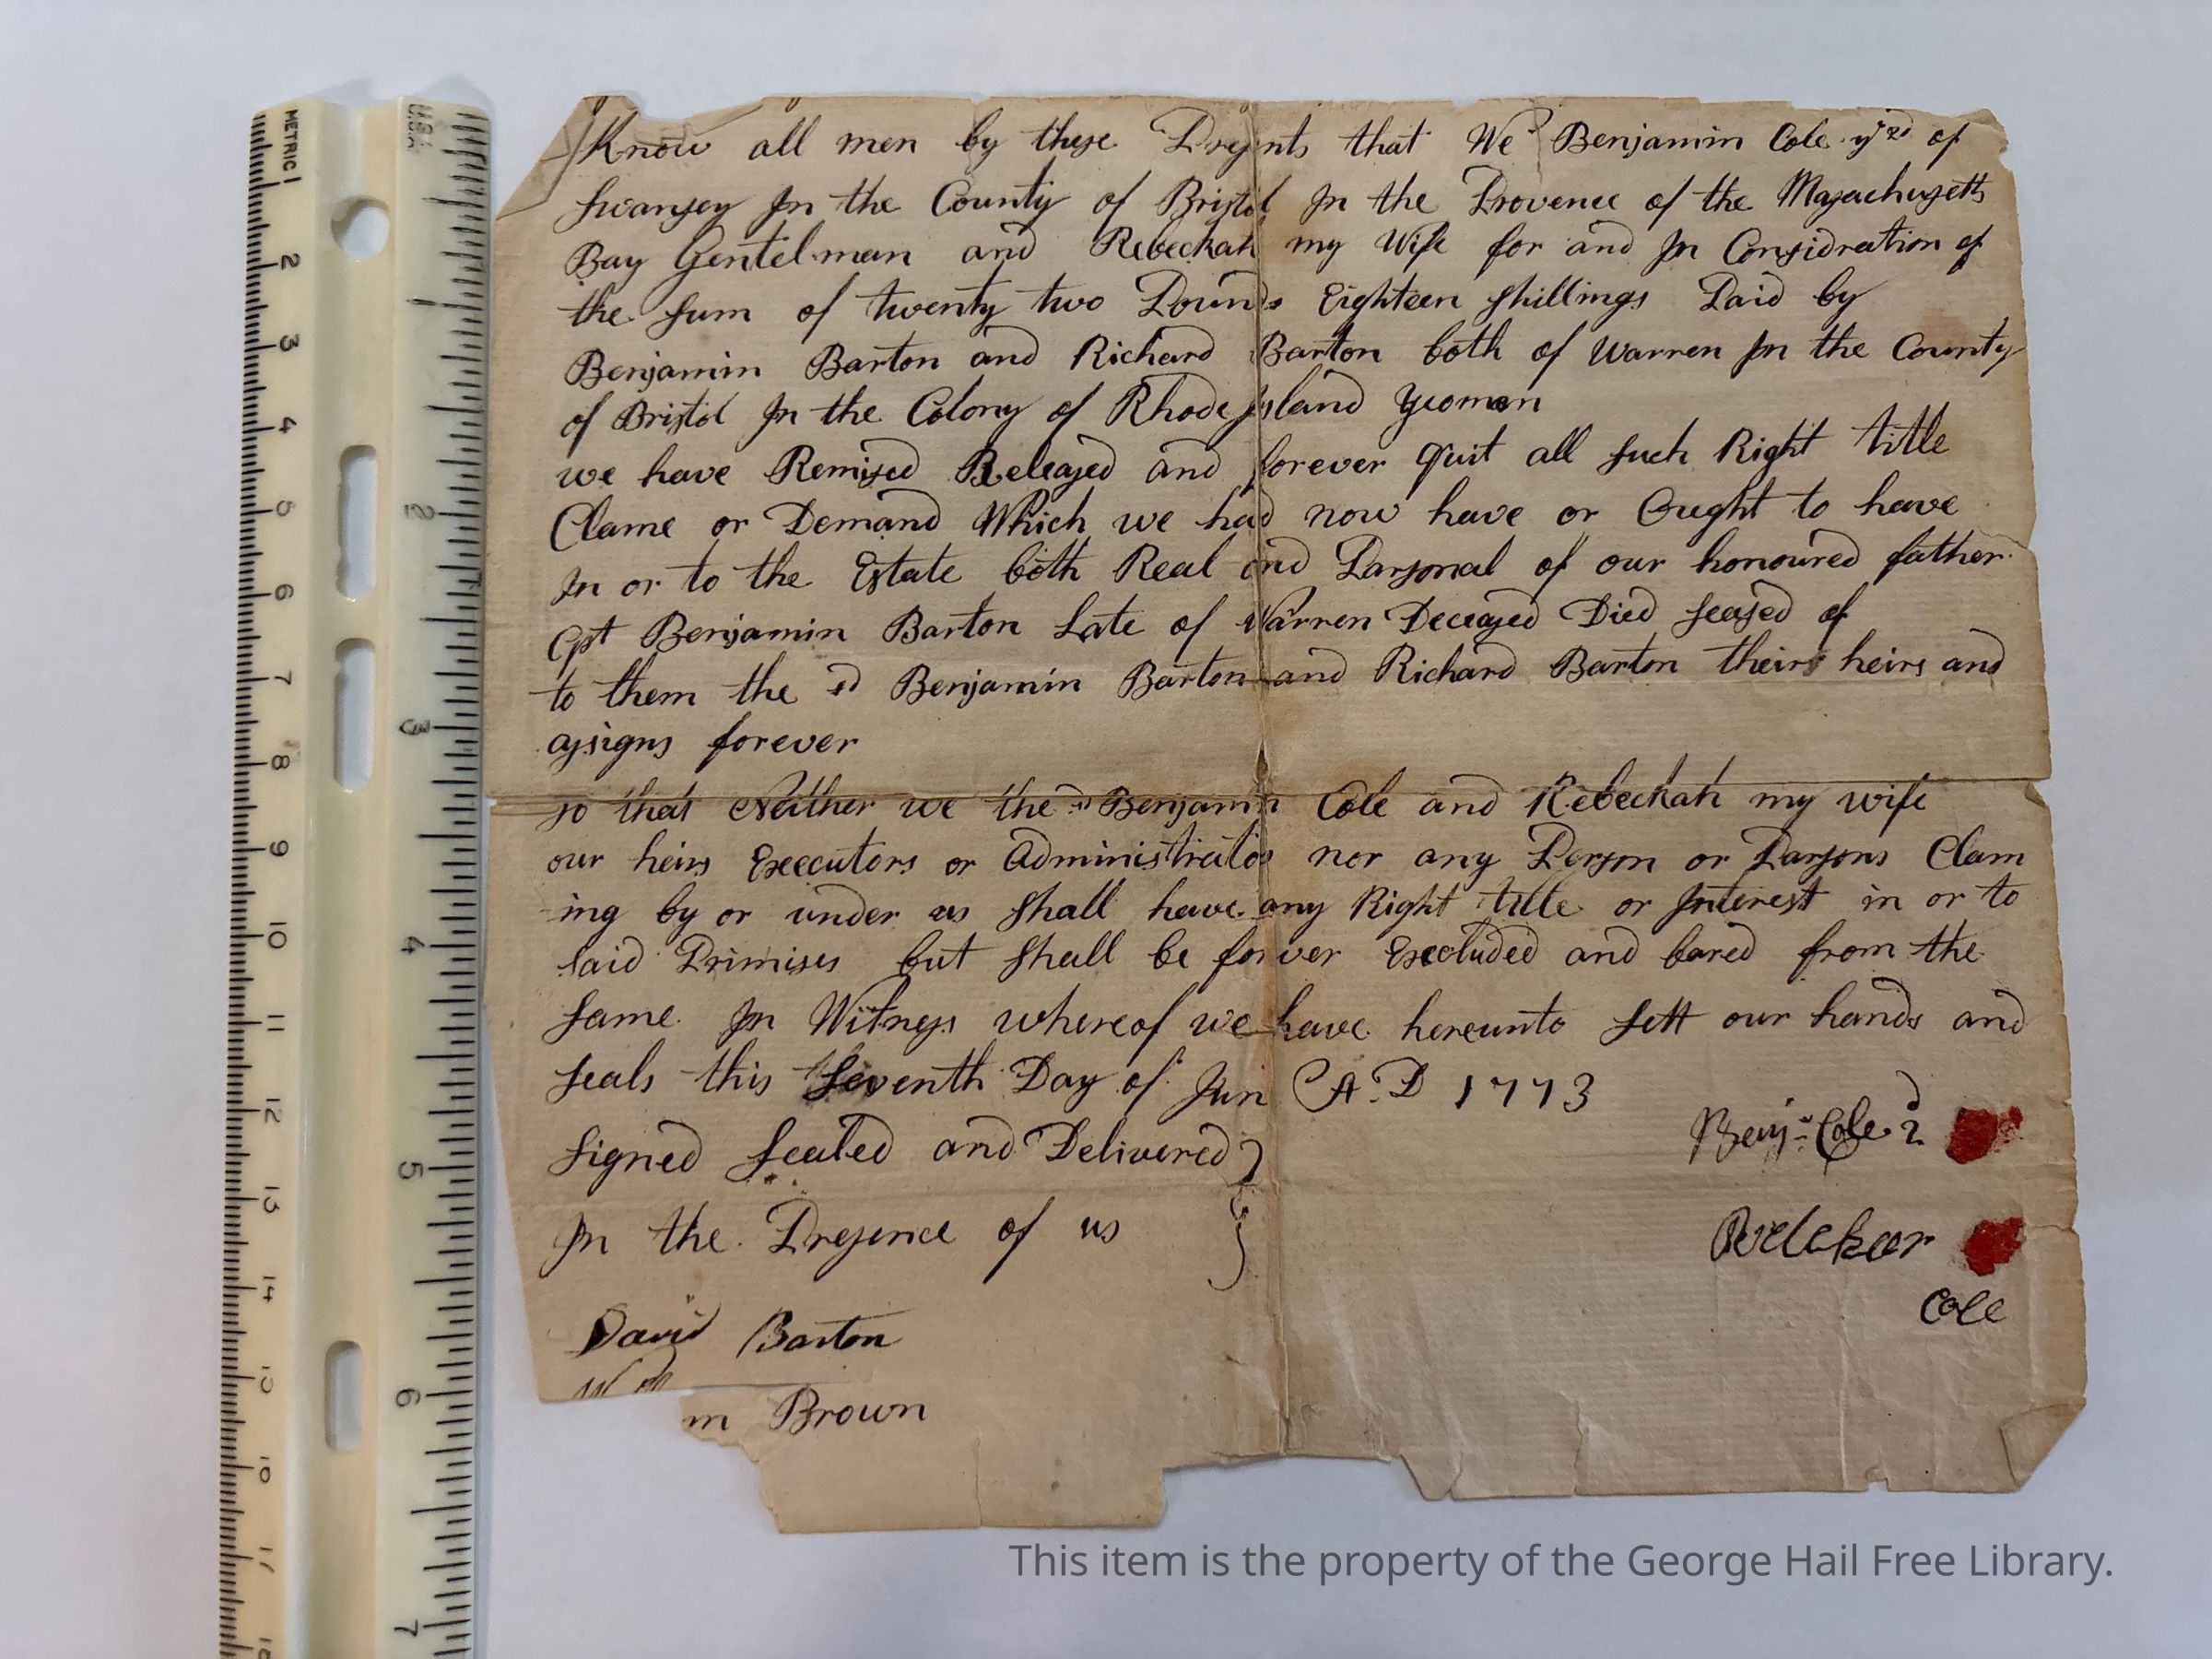 Know all men by these Presents that We Benjamin Cole ye 2d of
Swansey In the County of Bristol In the Provence of the Massachusetts
Bay Gentelman and Rebeckah my Wife for and In Considration of
the Sum of twenty two Pounds Eighteen Shillings Paid by
Benjamin Barton and Richard Barton both of Warren In the County
of Bristol In the Colony of Rhode Island Yeomen
we have Remised Released and forever Quit all Such Right title
Clame or Demand Which we had now have or Ought to have
In or to the Estate both Real and Parsonal of our honoured father
Cpt Benjamin Barton Late of Warren Deceased Died Seased of
to them the sd Benjamin Barton and Richard Barton theirs heirs and
assigns forever
so that Neither we the sd Benjamin Cole and Rebeckah my wife
our heirs Executors or Administrators nor any Person or Parsons Clam
ing by or under us Shall have any Right title or Interest in or to
Said Primises but Shall be forever Excluded and bared from the
Same In Witness whereof we have hereunto Sett our hands and
Seals this Seventh Day of Jun A.D 1773
Signed Sealed and Delivered
In the Presence of us
Benj:n Cole 2d
Rebekar
Cole
David Barton
Wm Brown
METRIC 1 2 3 4 5 6 7 8 9 10 11 12 13 14
2 3 4 5 6 7
This item is the property of the George Hail Free Library.